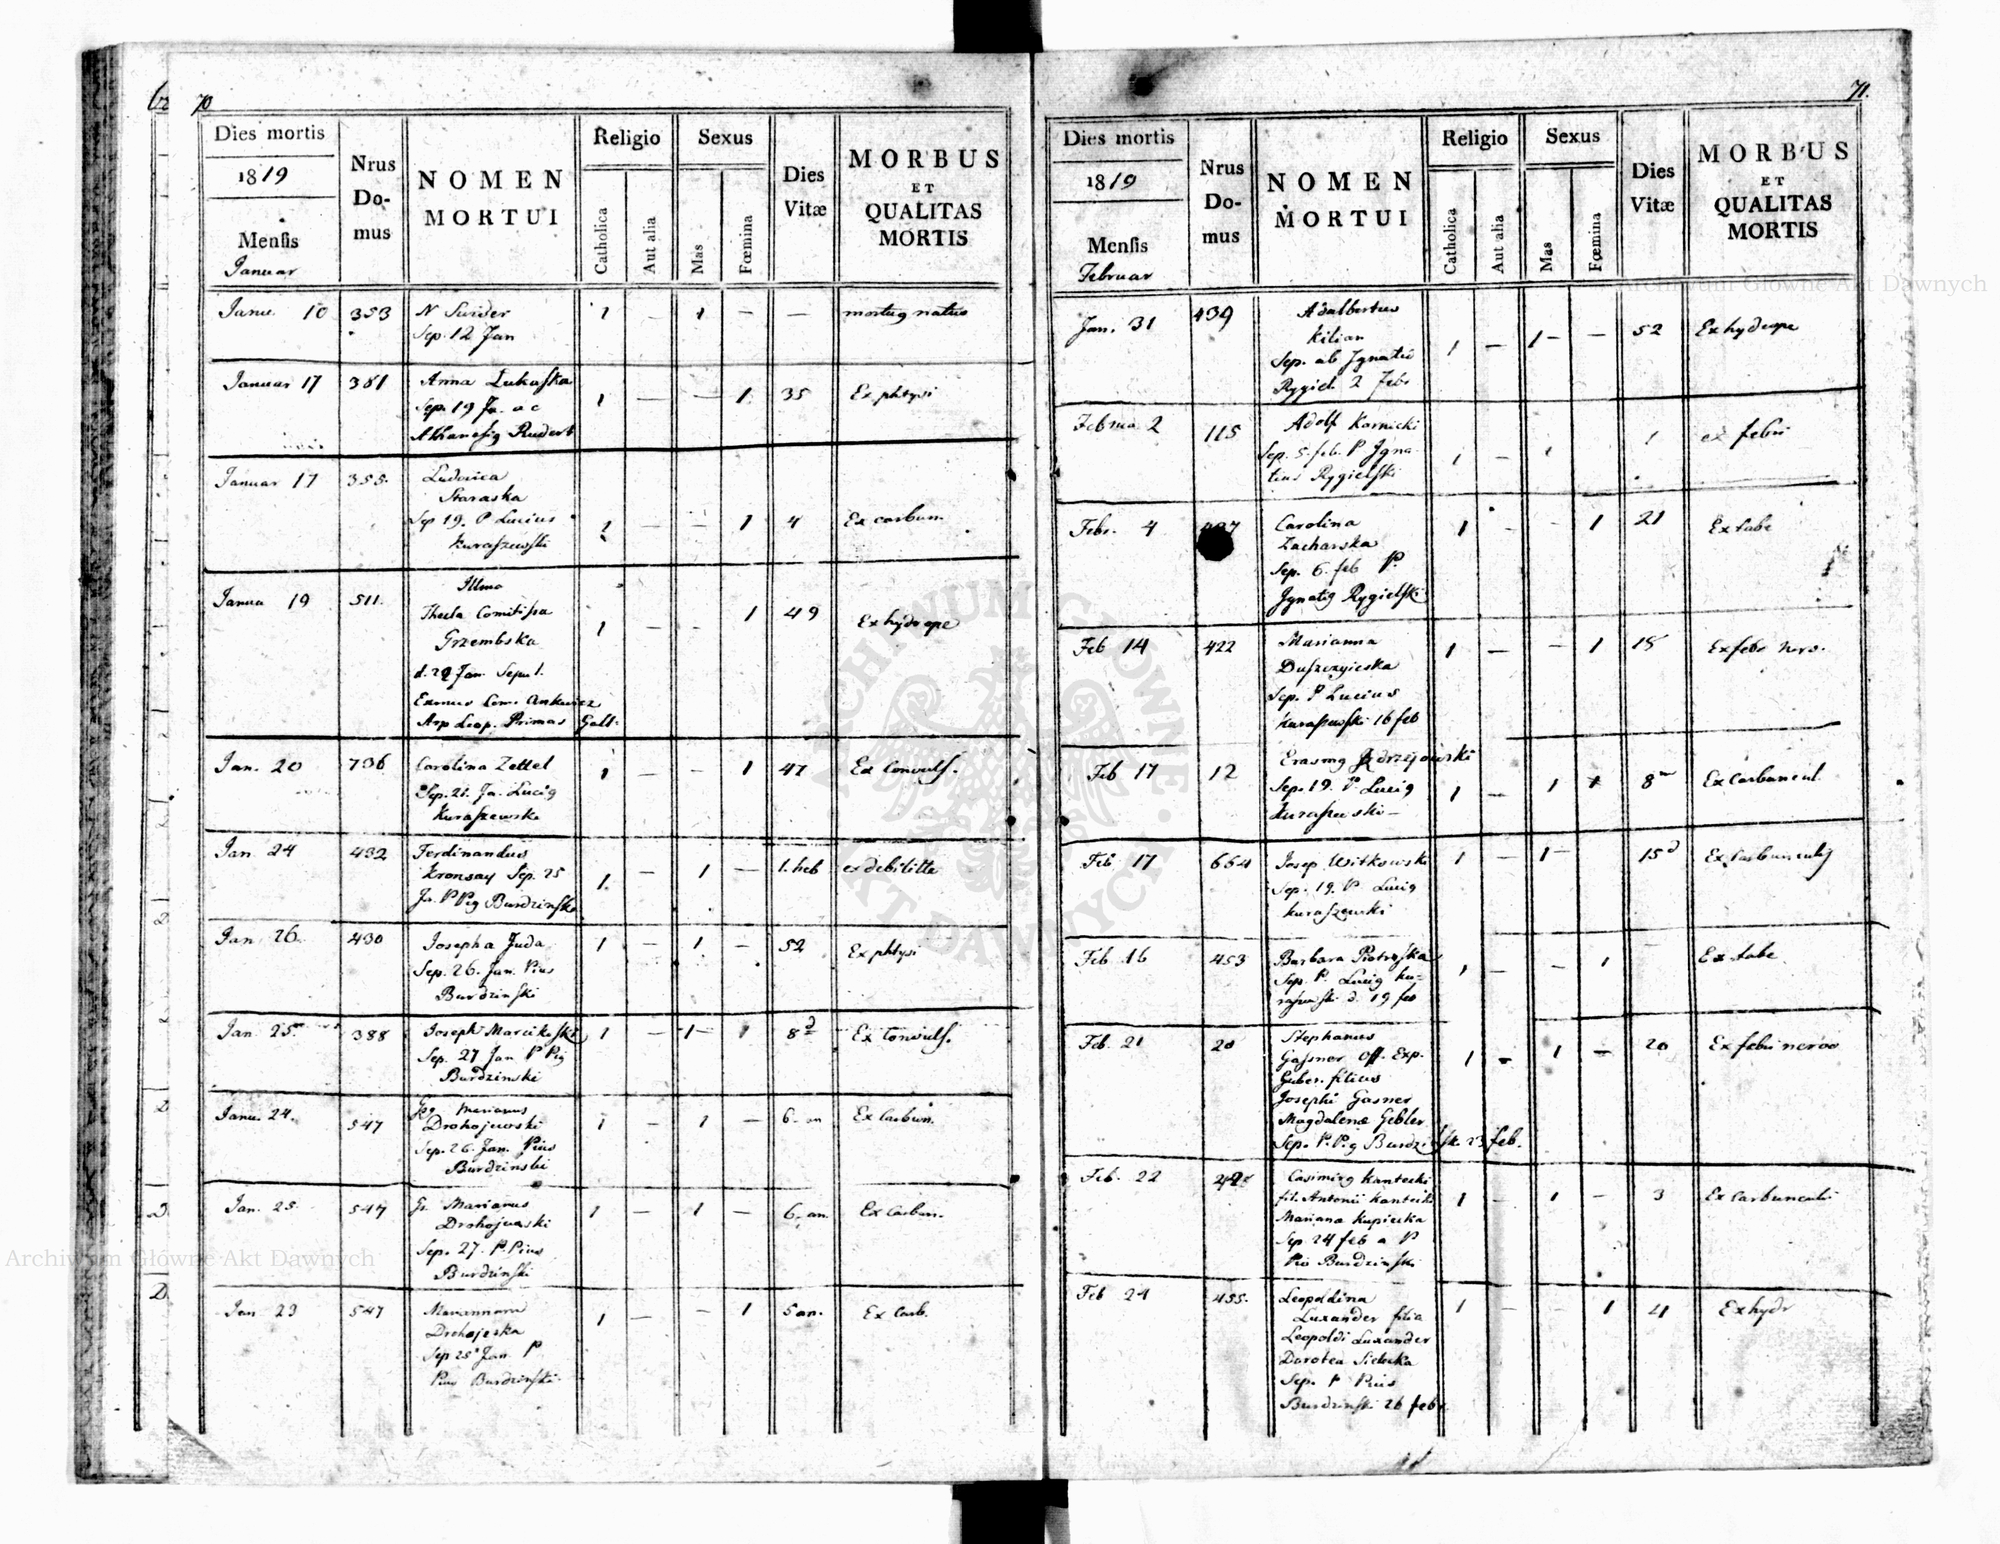 70
Dies mortis
1819
Mensis
Januar
Nrus
Do-
mus
NOMEN
MORTUI
Religio
Catholica
Aut alia
Sexus
Mas
Fœmina
Dies
Vitæ
MORBUS
ET
QUALITAS
MORTIS
Janu. 10 353 N Swider 1 1 — — mortuq natus
Sep. 12 Jan
Januar 17 381 Anna Lukaska 1 — — 1 35 Ex phtysi
Sep. 19 Ja. a c
Januar 17 355. Ludovica
Staraska
Sep 19. P Lucius 1 — — 1 4 Ex carbun.
Kuraszewski
Janua 19 511. Illma
Thecla Comitissa 1 — — 1 49 Ex hydrope
Grzembska
Jan. Sepul.
Primas Gall:
Jan. 20 736 Carolina Zettel 1 — — 1 47 Ex Convuls.
Sep. 21. Ja. Lucig
Kuraszewski
Jan. 24 432 Ferdinandus
Kronsay Sep. 25 1. — 1 — 1. heb ex debilitte
Ja. P Pig Burdzinski
Jan. 26. 430 Josepha Juda 1 — 1 — 52 Ex phtysi
Sep. 26. Jan. Pius
Burdzinski
Jan. 25. 388 Joseph Marcikoski 1 — 1— 1 8 d Ex Convuls.
Sep. 27 Jan P Pig
Burdzinski
Janu. 24. 547 Marianus
Drohojewski 1 — 1 — 6. an Ex Carbun.
Sep. 26. Jan. Pius
Burdzinski
Jan. 25. 547 Marianus 1 — 1 — 6. an. Ex Carbun.
Drohojewski
Sep. 27. P. Pius
Burdzinski
Jan 23 547 Marannara 1 — — 1 5 an. Ex Carb.
Drohojeska
Sep 25 Jan P
Pius Burdzinski
71.
Dies mortis
1819
Mensis
Februar
Nrus
Do-
mus
NOMEN
MORTUI
Religio
Catholica
Aut alia
Sexus
Mas
Fœmina
Dies
Vitæ
MORBUS
ET
QUALITAS
MORTIS
Jan. 31 439 Adalbertus
Kilian 1 — 1 — — 52 Ex hydrope
Sep. ab Ignatio
Rygiel. 2 Febr
Februa 2 115 Adolf Karnicki
Sep. 5. feb. P Igna- 1 — 1 1 ex febri
tius Rygielski
Febr. 4 Carolina 1 — — 1 21 Ex tabe
Zacharska
Sep. 6. feb P.
Ignatig Rygielski
Feb 14 422 Marianna 1 — — 1 18 Ex febr nerv.
Duszczyieska
Sep. P Lucius
Kuraszewski 16 feb
Feb 17 12 Erasmg Jędrzejowski
Sep. 19. P. Lucig 1 — 1 1 8 Ex Carbuncul.
Kuraszewski —
Feb 17 664 Josep. Witkowski 1 — 1 — 15 d Ex Carbunculq
Sep. 19. P Lucig
Kuraszewski
Feb. 16 453 Barbara Piotrzyska 1 — — 1 Ex tabe
Sep. P. Lucig Ku-
raszewski d. 19 feb
Feb. 21 20 Stephanus
Gassner Off. Exp. 1 — 1 — 20 Ex febri nervo
Guber. filius
Josephi Gasner
Magdalenæ Gebler
Sep. P. Pig Burdzinsk. 23 feb.
Feb. 22 Casimirg Kantecki
fil. Antonii Kantecki 1 — 1 — 3 Ex Carbunculi
Mariana Kupiecka
Sep. 24 feb a P
Pio Burdzinski
Feb 24 455. Leopoldina 1 — — 1 4 Ex hydr
Luxander filia
Leopoldi Luxander
Dorotea Sielecka
Sep. P Pius
Burdzinski 26 febr
Archiwum Główne Akt Dawnych
Archiwum Główne Akt Dawnych
ARCHIWUM GŁÓWNE • AKT DAWNYCH •